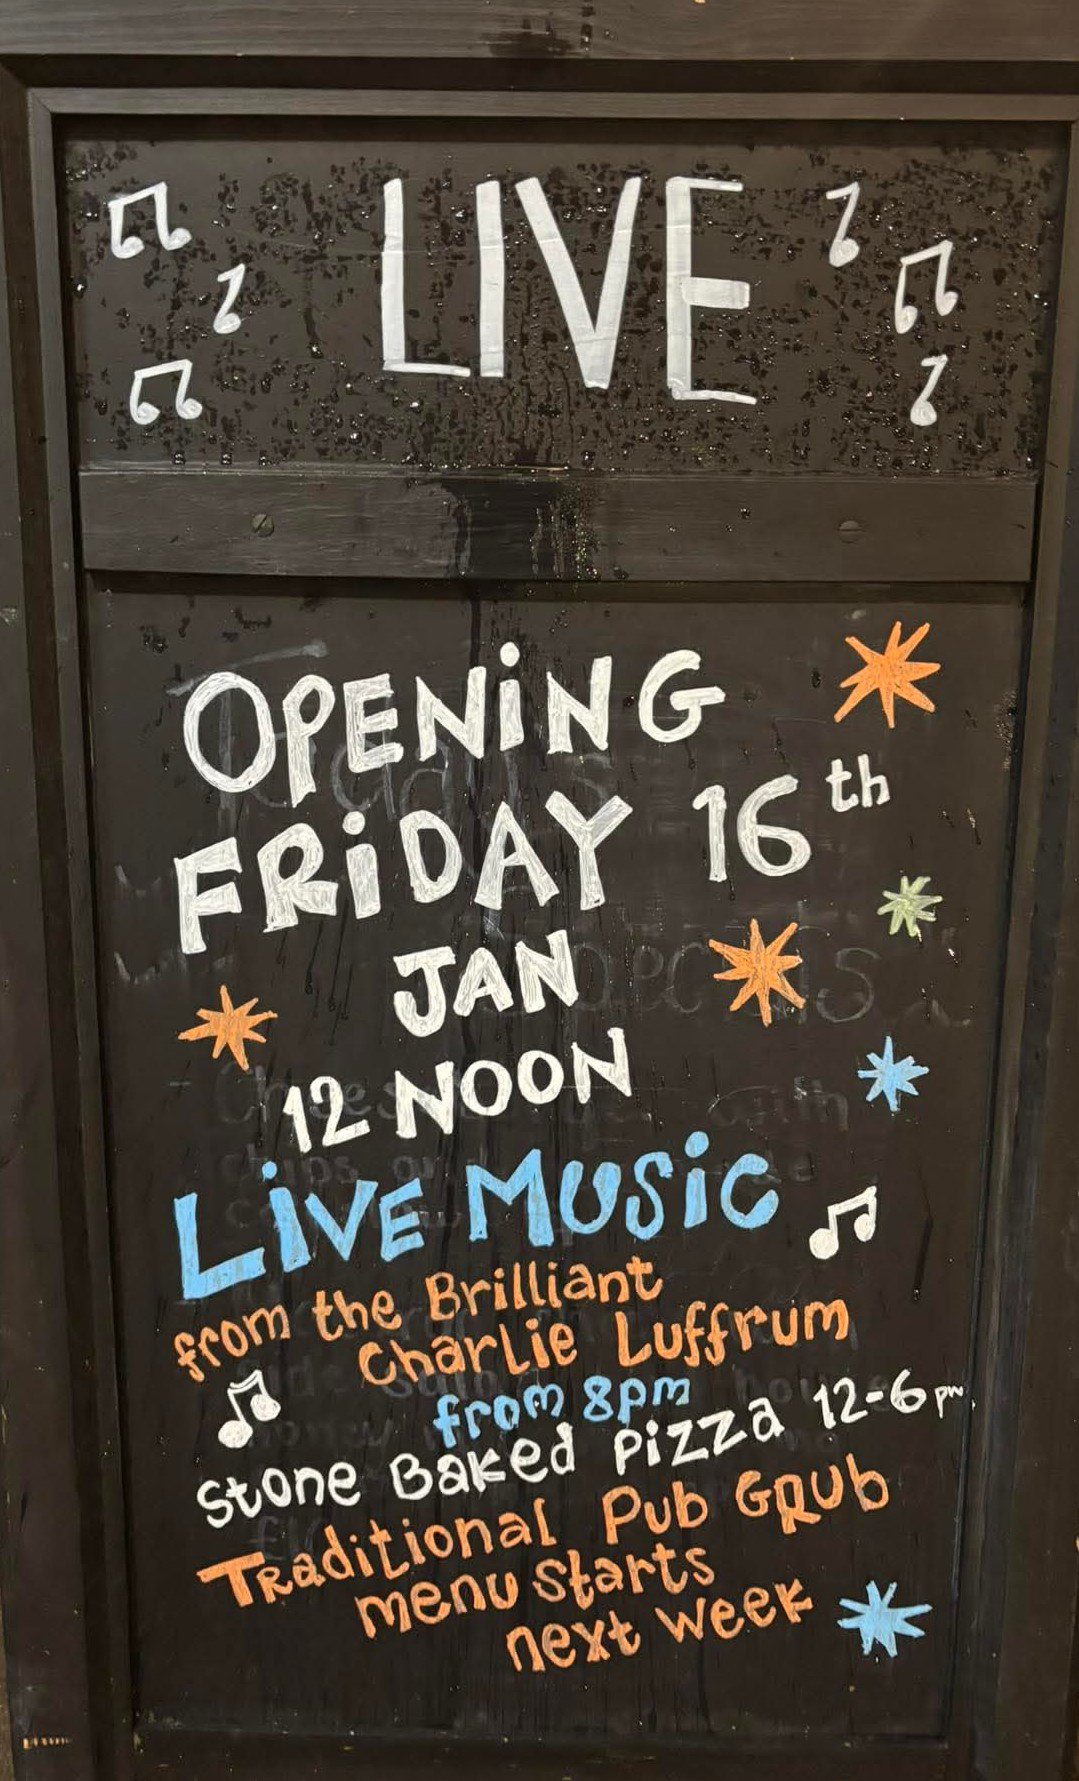 LIVE
OPENING
FRIDAY 16th
JAN
12 NOON
LIVE MUSIC
from the Brilliant
Charlie Luffrum
from 8pm
Stone Baked Pizza 12-6pm
Traditional Pub Grub
menu starts
next week